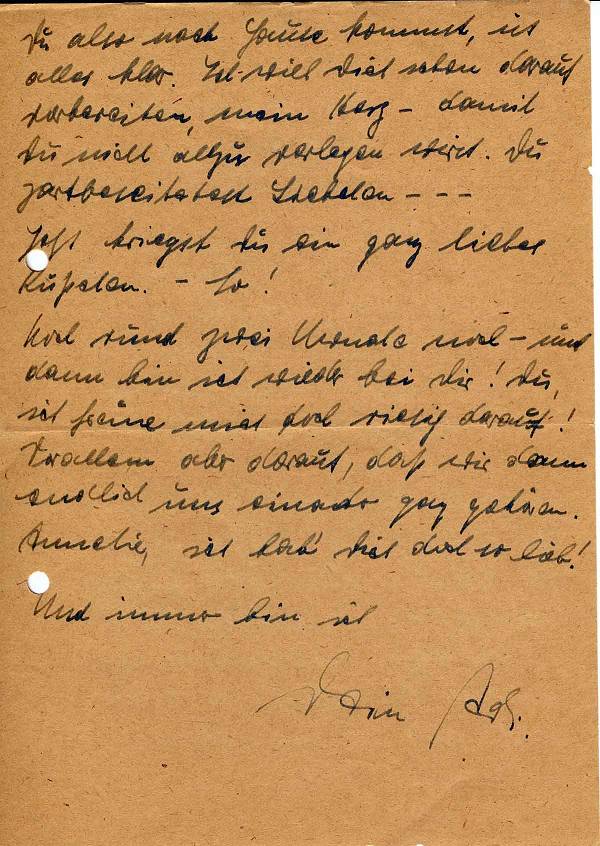 Du also nach Hause kommst, ist
alles klar. Ich will Dich schon darauf
vorbereiten, mein Herz – damit
Du nicht allzu verlegen wirst. Du
zartbesaitetes – – –
Jetzt kriegst Du ein ganz liebes
– So!
Noch rund zwei Monate noch – und
dann bin ich wieder bei Dir! Du,
ich freue mich doch riesig darauf!
Vor allem aber darauf, daß wir dann
endlich uns einander ganz gehören.
Annelie, ich hab' Dich doch so lieb!
Und immer bin ich
Dein